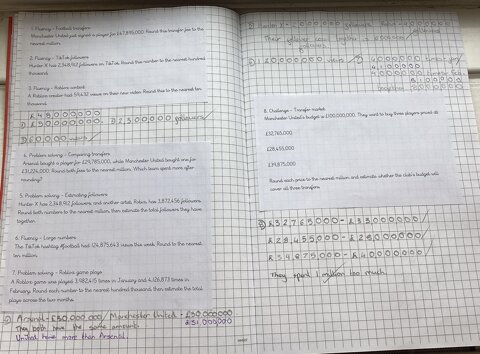 1. Fluency - Football transfers
Manchester United just signed a player for £47,895,000. Round this transfer fee to the
nearest million.
2. Fluency - TikTok followers
Hunter-X has 2,348,912 followers on TikTok. Round this number to the nearest hundred
thousand.
3. Fluency - Roblox content
A Roblox creator had 59,432 views on their new video. Round this to the nearest ten
thousand.
£48000000
2,300000 followers
60,000 views
4. Problem solving - Comparing transfers
Arsenal bought a player for £29,785,000, while Manchester United bought one for
£31,224,000. Round both fees to the nearest million. Which team spent more after
rounding?
5. Problem solving - Estimating followers
Hunter-X has 2,348,912 followers, and another artist, Robin, has 3,872,456 followers.
Round both numbers to the nearest million, then estimate the total followers they have
together.
6. Fluency - Large numbers
The TikTok hashtag #football had 124,875,643 views this week. Round to the nearest
ten million.
7. Problem solving - Roblox game plays
A Roblox game was played 3,982,415 times in January and 4,126,873 times in
February. Round each number to the nearest hundred thousand, then estimate the total
plays across the two months.
Arsenal = £30,000,000 Manchester United = £30,000000
They both have the same amount £31,000,000
United have more than Arsenal.
Their followers
120000000 views
8. Challenge - Transfer market
Manchester United's budget is £100,000,000. They want to buy three players priced at:
£32,765,000
£28,455,000
£39,875,000
Round each price to the nearest million and estimate whether the club's budget will
cover all three transfers.
£32,765000 = £33000000
£28455000 = £28000000
= £40000000
They spent 1 million too much